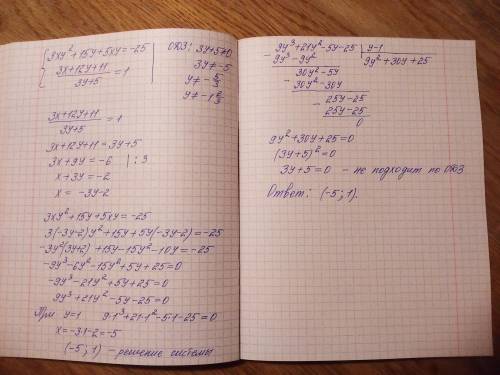 { 3xy² + 15y + 5xy = -25
{ (3x+12y+11)/(3y+5) = 1
ОДЗ: 3y+5≠0
3y ≠ -5
y ≠ -5/3
y ≠ -1 2/3
(3x+12y+11)/(3y+5) = 1
3x+12y+11 = 3y+5
3x+9y = -6 | : 3
x+3y = -2
x = -3y-2
3xy² + 15y + 5xy = -25
3(-3y-2)y² + 15y + 5y(-3y-2) = -25
-3y²(3y+2) + 15y - 15y² - 10y = -25
-9y³ - 6y² - 15y² + 5y + 25 = 0
-9y³ - 21y² + 5y + 25 = 0
9y³ + 21y² - 5y - 25 = 0
При y=1 9·1³ + 21·1² - 5·1 - 25 = 0
x = -3·1 - 2 = -5
(-5; 1) - решение системы
- 9y³ + 21y² - 5y - 25 | y-1
9y³ - 9y² | 9y² + 30y + 25
30y² - 5y
- 30y² - 30y
25y - 25
- 25y - 25
0
9y² + 30y + 25 = 0
(3y+5)² = 0
3y+5 = 0 - не подходит по ОДЗ
Ответ: (-5; 1).